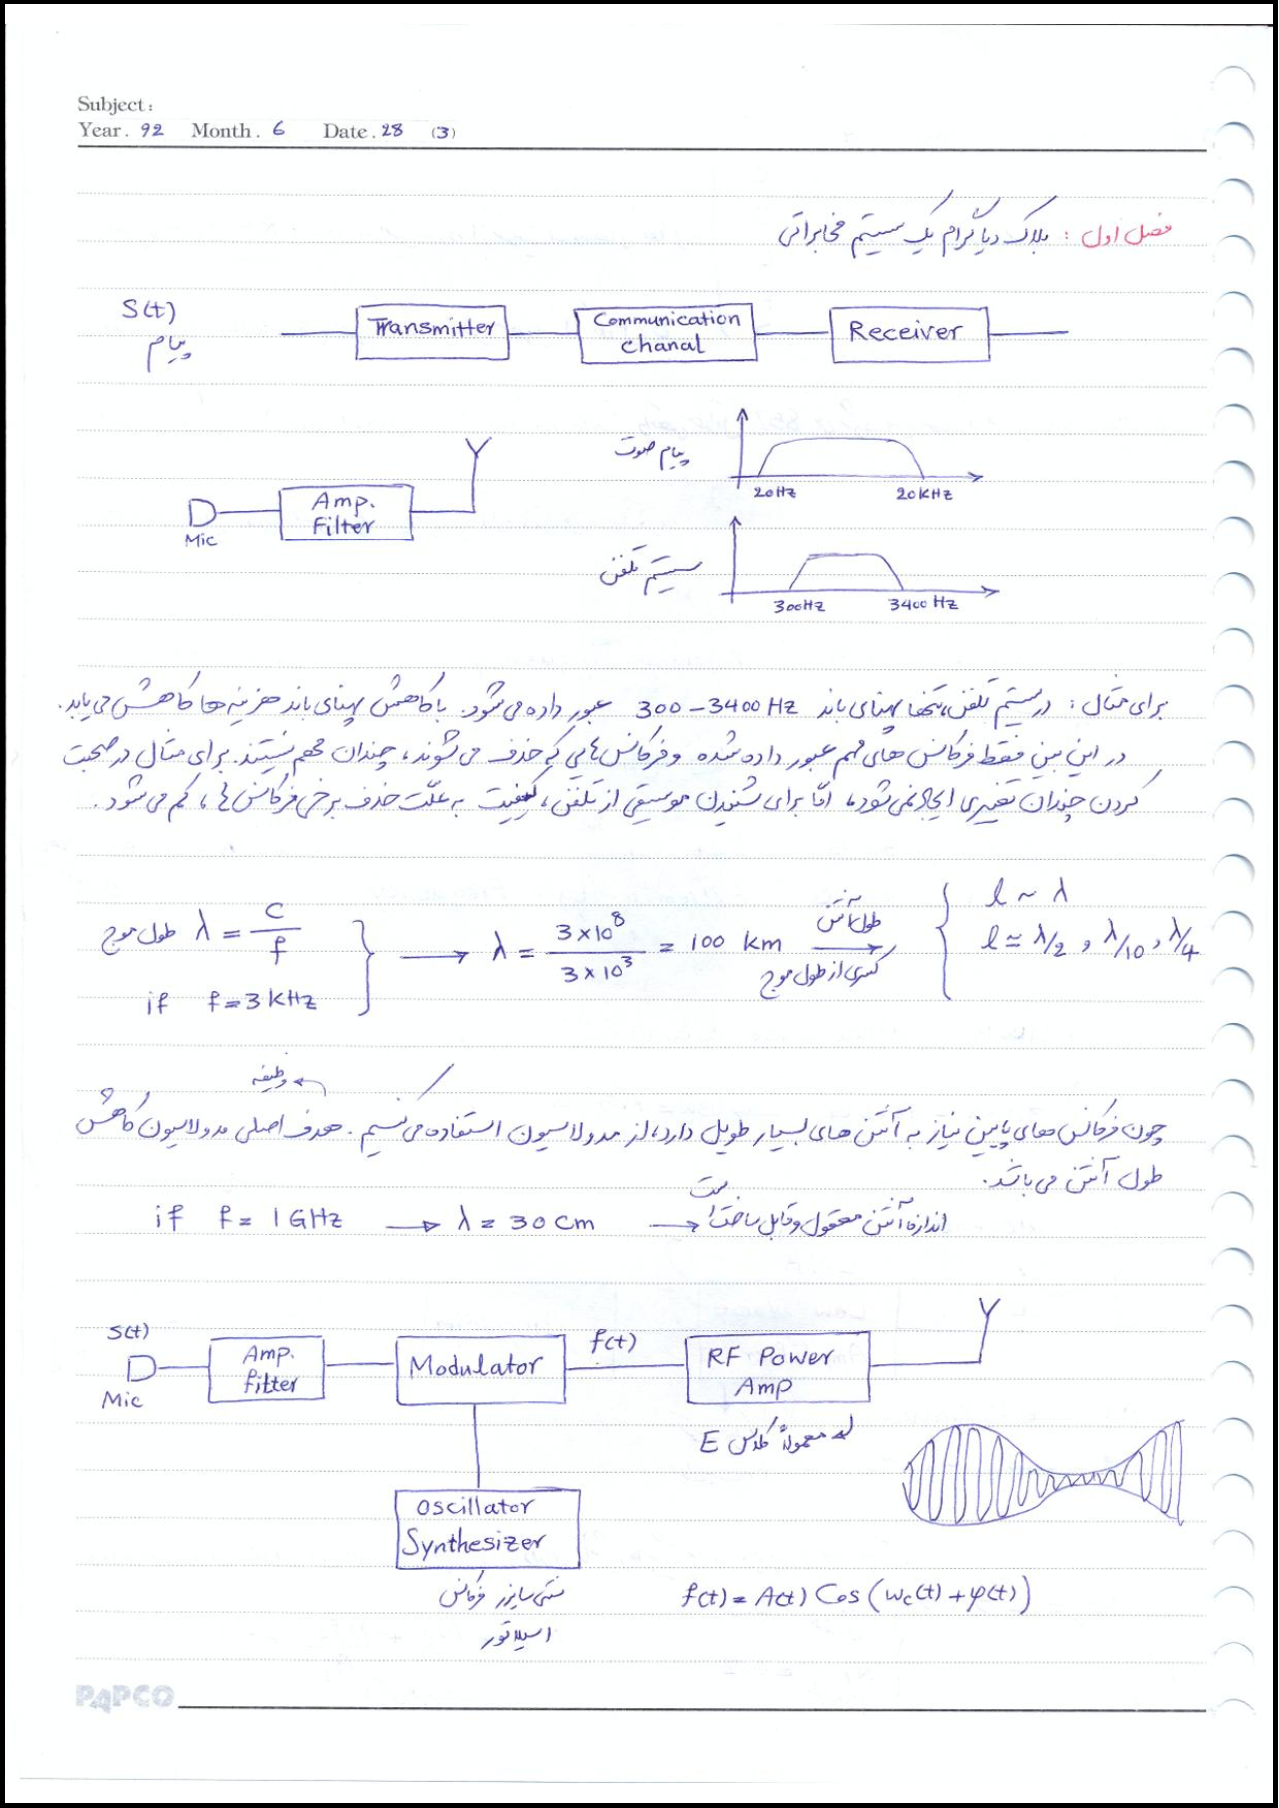 Subject:
Year. 92 Month. 6 Date. 28 (3)
فصل اول : بلاک دیاگرام یک سیستم مخابراتی
S(t)
پیام
Transmitter
Communication
chanal
Receiver
Mic
Amp.
Filter
پیام صوت
20Hz 20KHz
سیستم تلفن
300Hz 3400 Hz
برای مثال : در سیستم تلفن، تنها پهنای باند 300-3400 Hz عبور داده می‌شود. با کاهش پهنای باند هزینه ها کاهش می‌یابد.
در این بین فقط فرکانس های مهم عبور داده شده و فرکانس هایی که حذف می شوند، چندان مهم نیستند. برای مثال در صحبت
کردن چندان تغییری ایجاد نمی شود، امّا برای شنیدن موسیقی از تلفن، کیفیت به علّت حذف برخی فرکانس ها، کم می شود.
طول موج λ = c/f
if f=3 KHz
→ λ = 3×10⁸ / 3×10³ = 100 km
طول آنتن
کسری از طول موج
l ~ λ
l ≃ λ/2 , λ/10 , λ/4
وظیفه
چون فرکانس های پایین نیاز به آنتن های بسیار طویل دارد، از مدولاسیون استفاده می کنیم. هدف اصلی مدولاسیون کاهش
طول آنتن می باشد.
if f = 1 GHz → λ = 30 cm → اندازه آنتن معقول و قابل ساخت است
S(t)
Mic
Amp.
filter
Modulator
f(t)
RF Power
Amp
معمولاً کلاس E
Oscillator
Synthesizer
سنتی سایزر فرکانس
اسیلاتور
f(t) = A(t) Cos (ωc(t) + φ(t))
PAPCO